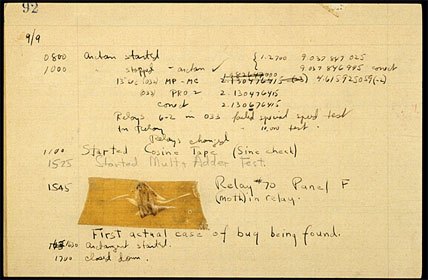 92
9/9
0800 Antan started { 1.2700 9.037 847 025
1000 stopped - antan ✓ 9.037 846 995 correct
13" MP - MC 2.130476415 4.615925059(-2)
033 PRO 2 2.130476415
correct 2.130676415
Relays 6-2 in 033 failed special speed test
in relay 10,000 test.
Relays changed
1100 Started Cosine Tape (Sine check)
1525 Started Mult + Adder Test.
1545 Relay #70 Panel F
(moth) in relay.
First actual case of bug being found.
1630 antangent started.
1700 closed down.